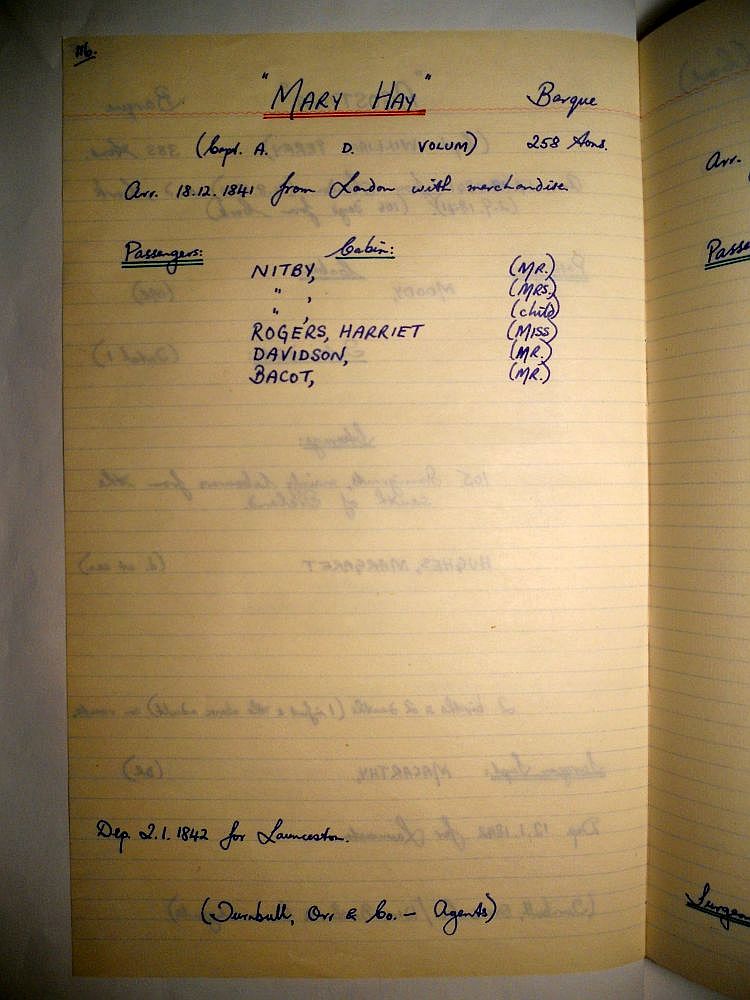 116.
"MARY HAY" Barque
(Capt. A. D. VOLUM) 258 tons.
Arr. 18.12.1841 from London with merchandise.
Passengers: Cabin:
NITBY, (MR.)
" , (MRS.)
" , (child)
ROGERS, HARRIET (MISS)
DAVIDSON, (MR.)
BACOT, (MR.)
Dep. 2.1.1842 for Launceston.
(Turnbull, Orr & Co. - Agents)
Arr.